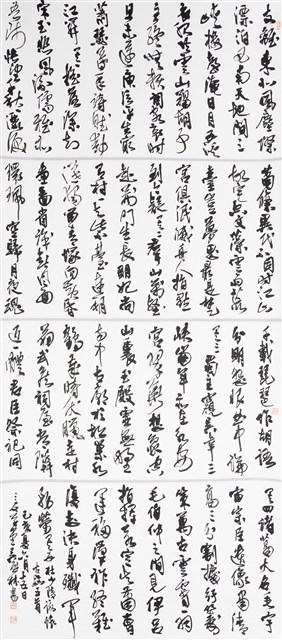 支離東北風塵際
漂泊西南天地間三
峽樓臺淹日月五溪
衣服共雲山羯胡事
主終無賴詞客哀時
且未還庾信平生最
蕭瑟暮年詩賦動
江關搖落深知
宋玉悲風流儒雅亦
吾師悵望千秋一灑淚
蕭條異代不同時江山
故宅空文藻雲雨荒
臺豈夢思最是楚
宮俱泯滅舟人指點
到今疑群山萬壑
赴荊門生長明妃尚
有村一去紫臺連朔
漠獨留青塚向黃昏
畫圖省識春風面
環珮空歸月夜魂
千載琵琶作胡語
分明怨恨曲中論
蜀主窺吳幸三
峽崩年亦在永安
宮翠華想像空
山裏玉殿虛無野
寺中古廟杉松巢水
鶴歲時伏臘走村
翁武侯祠屋常鄰
近一體君臣祭祀同
諸葛大名垂宇
宙宗臣遺像肅清
高三分割據紆籌
策萬古雲霄一羽
毛伯仲之間見伊呂
指揮若定失蕭曹
運移漢祚終難
復志決身殲軍
務勞杜少陵詠懷
古跡五首
己亥夏六月十五日